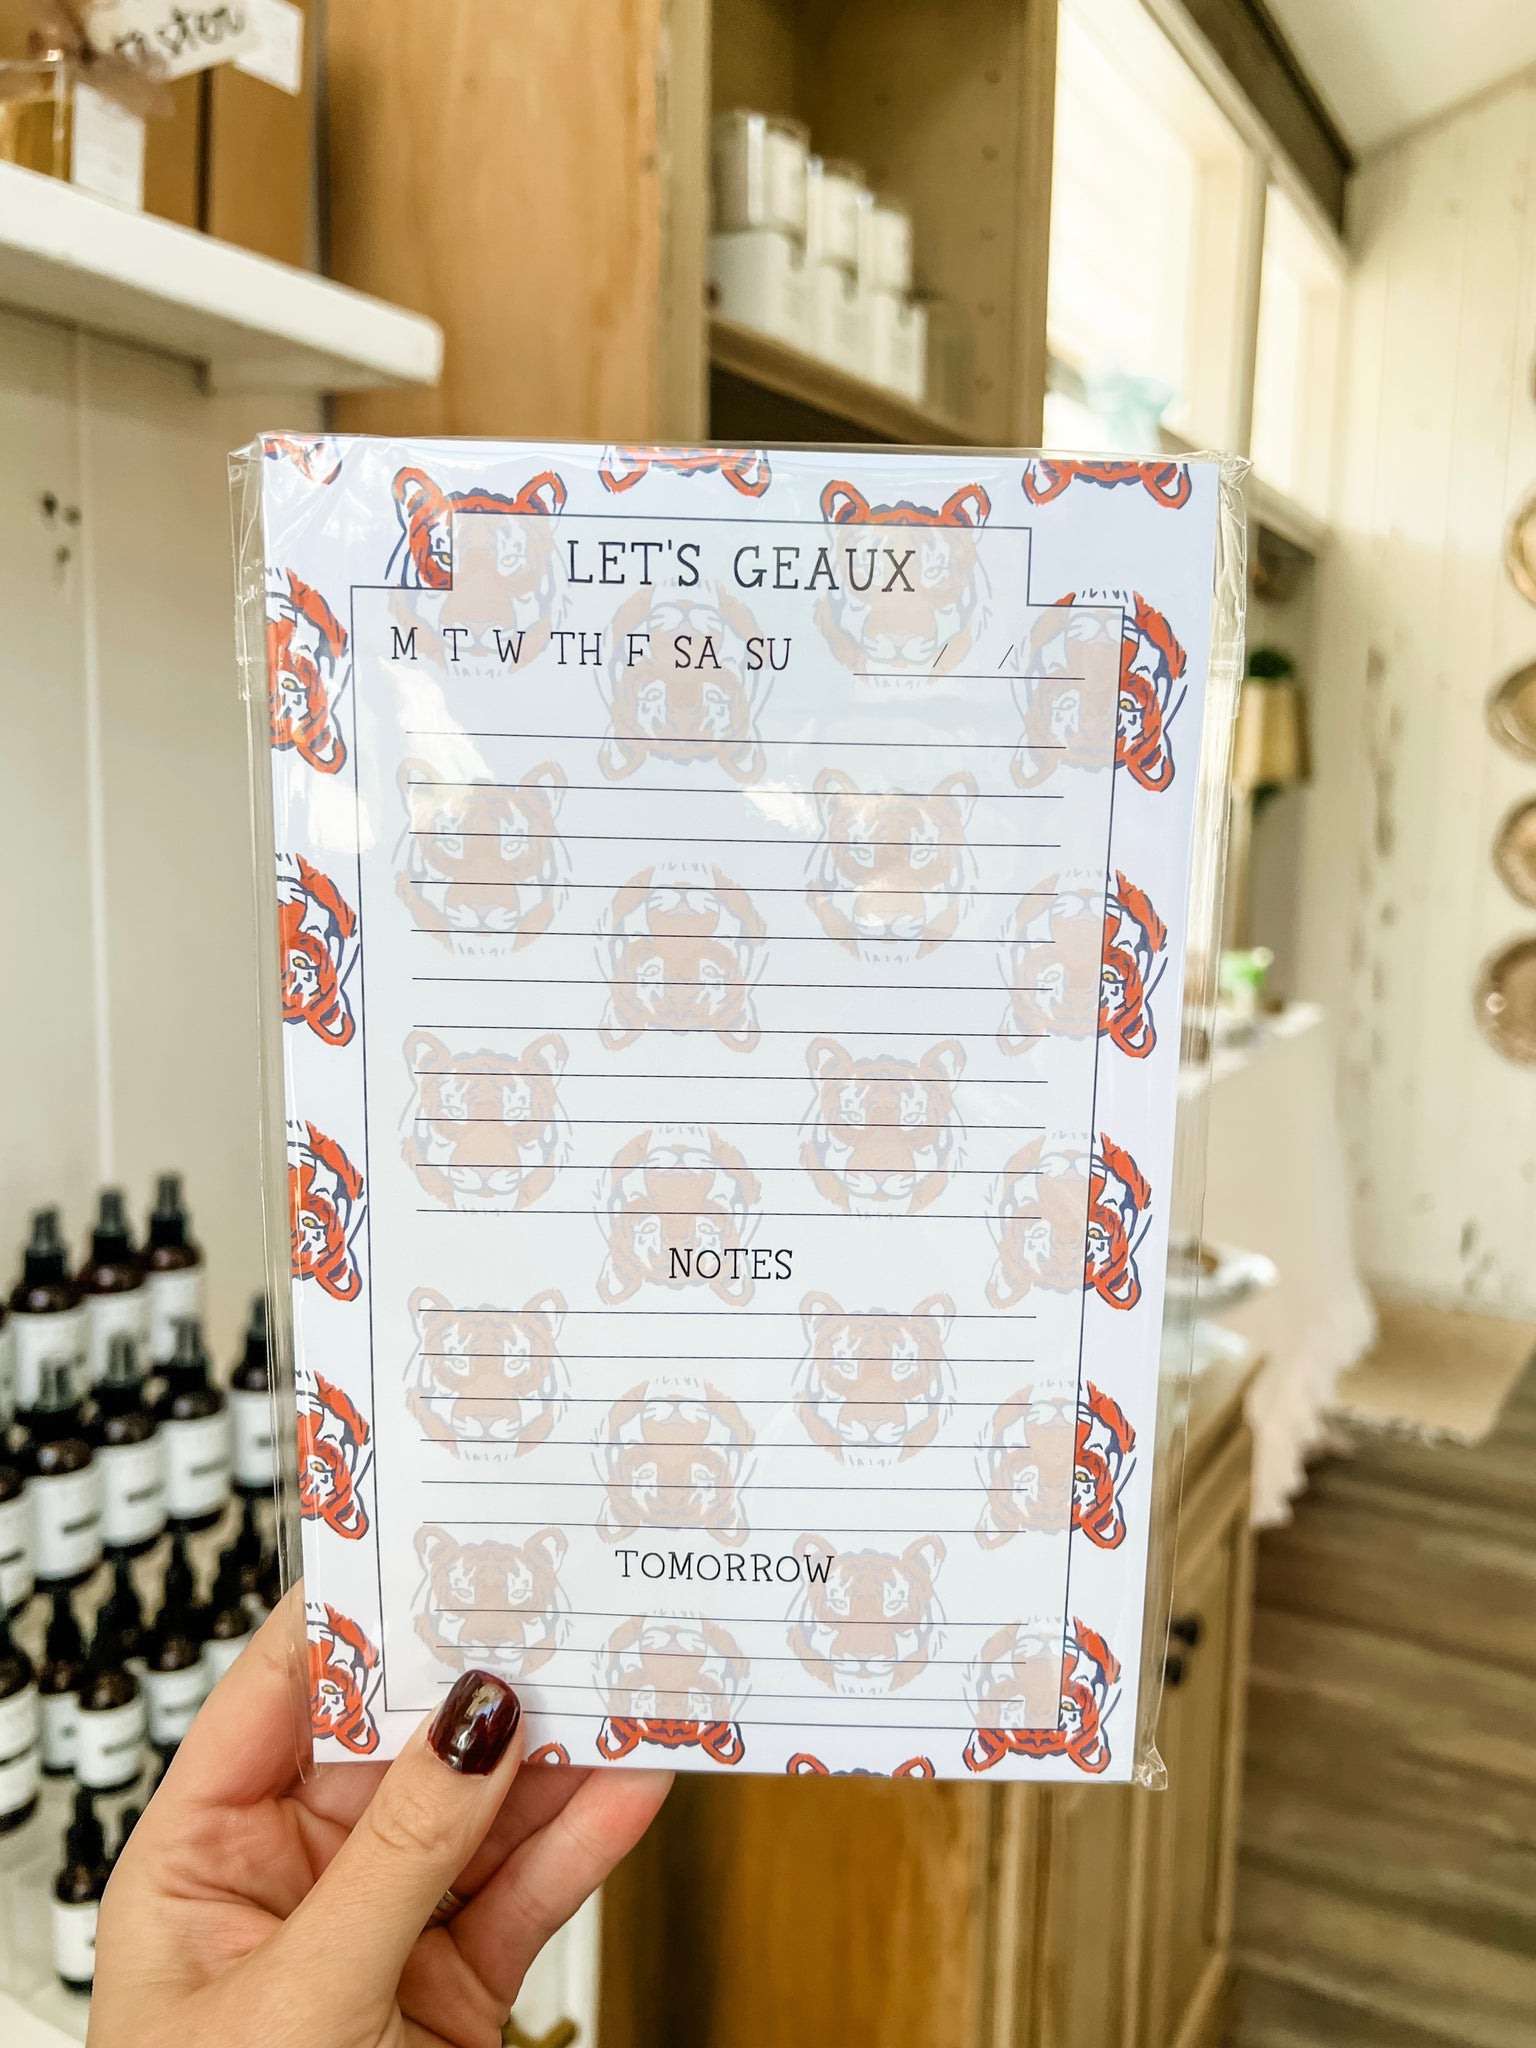 LET'S GEAUX
M T W TH F SA SU / /
NOTES
TOMORROW